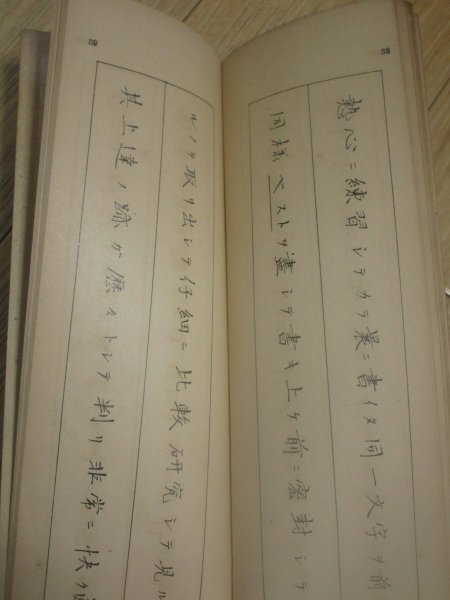 38
熱心ニ練習シテカラ曩ニ書イタ同一文字ヲ前
同様ベストヲ盡シテ書キ上ゲ前ニ密封シテ
39
ルノヲ取リ出シテ仔細ニ比較研究シテ見ル
其上達ノ跡ガ歴々トシテ判リ非常ニ快ク